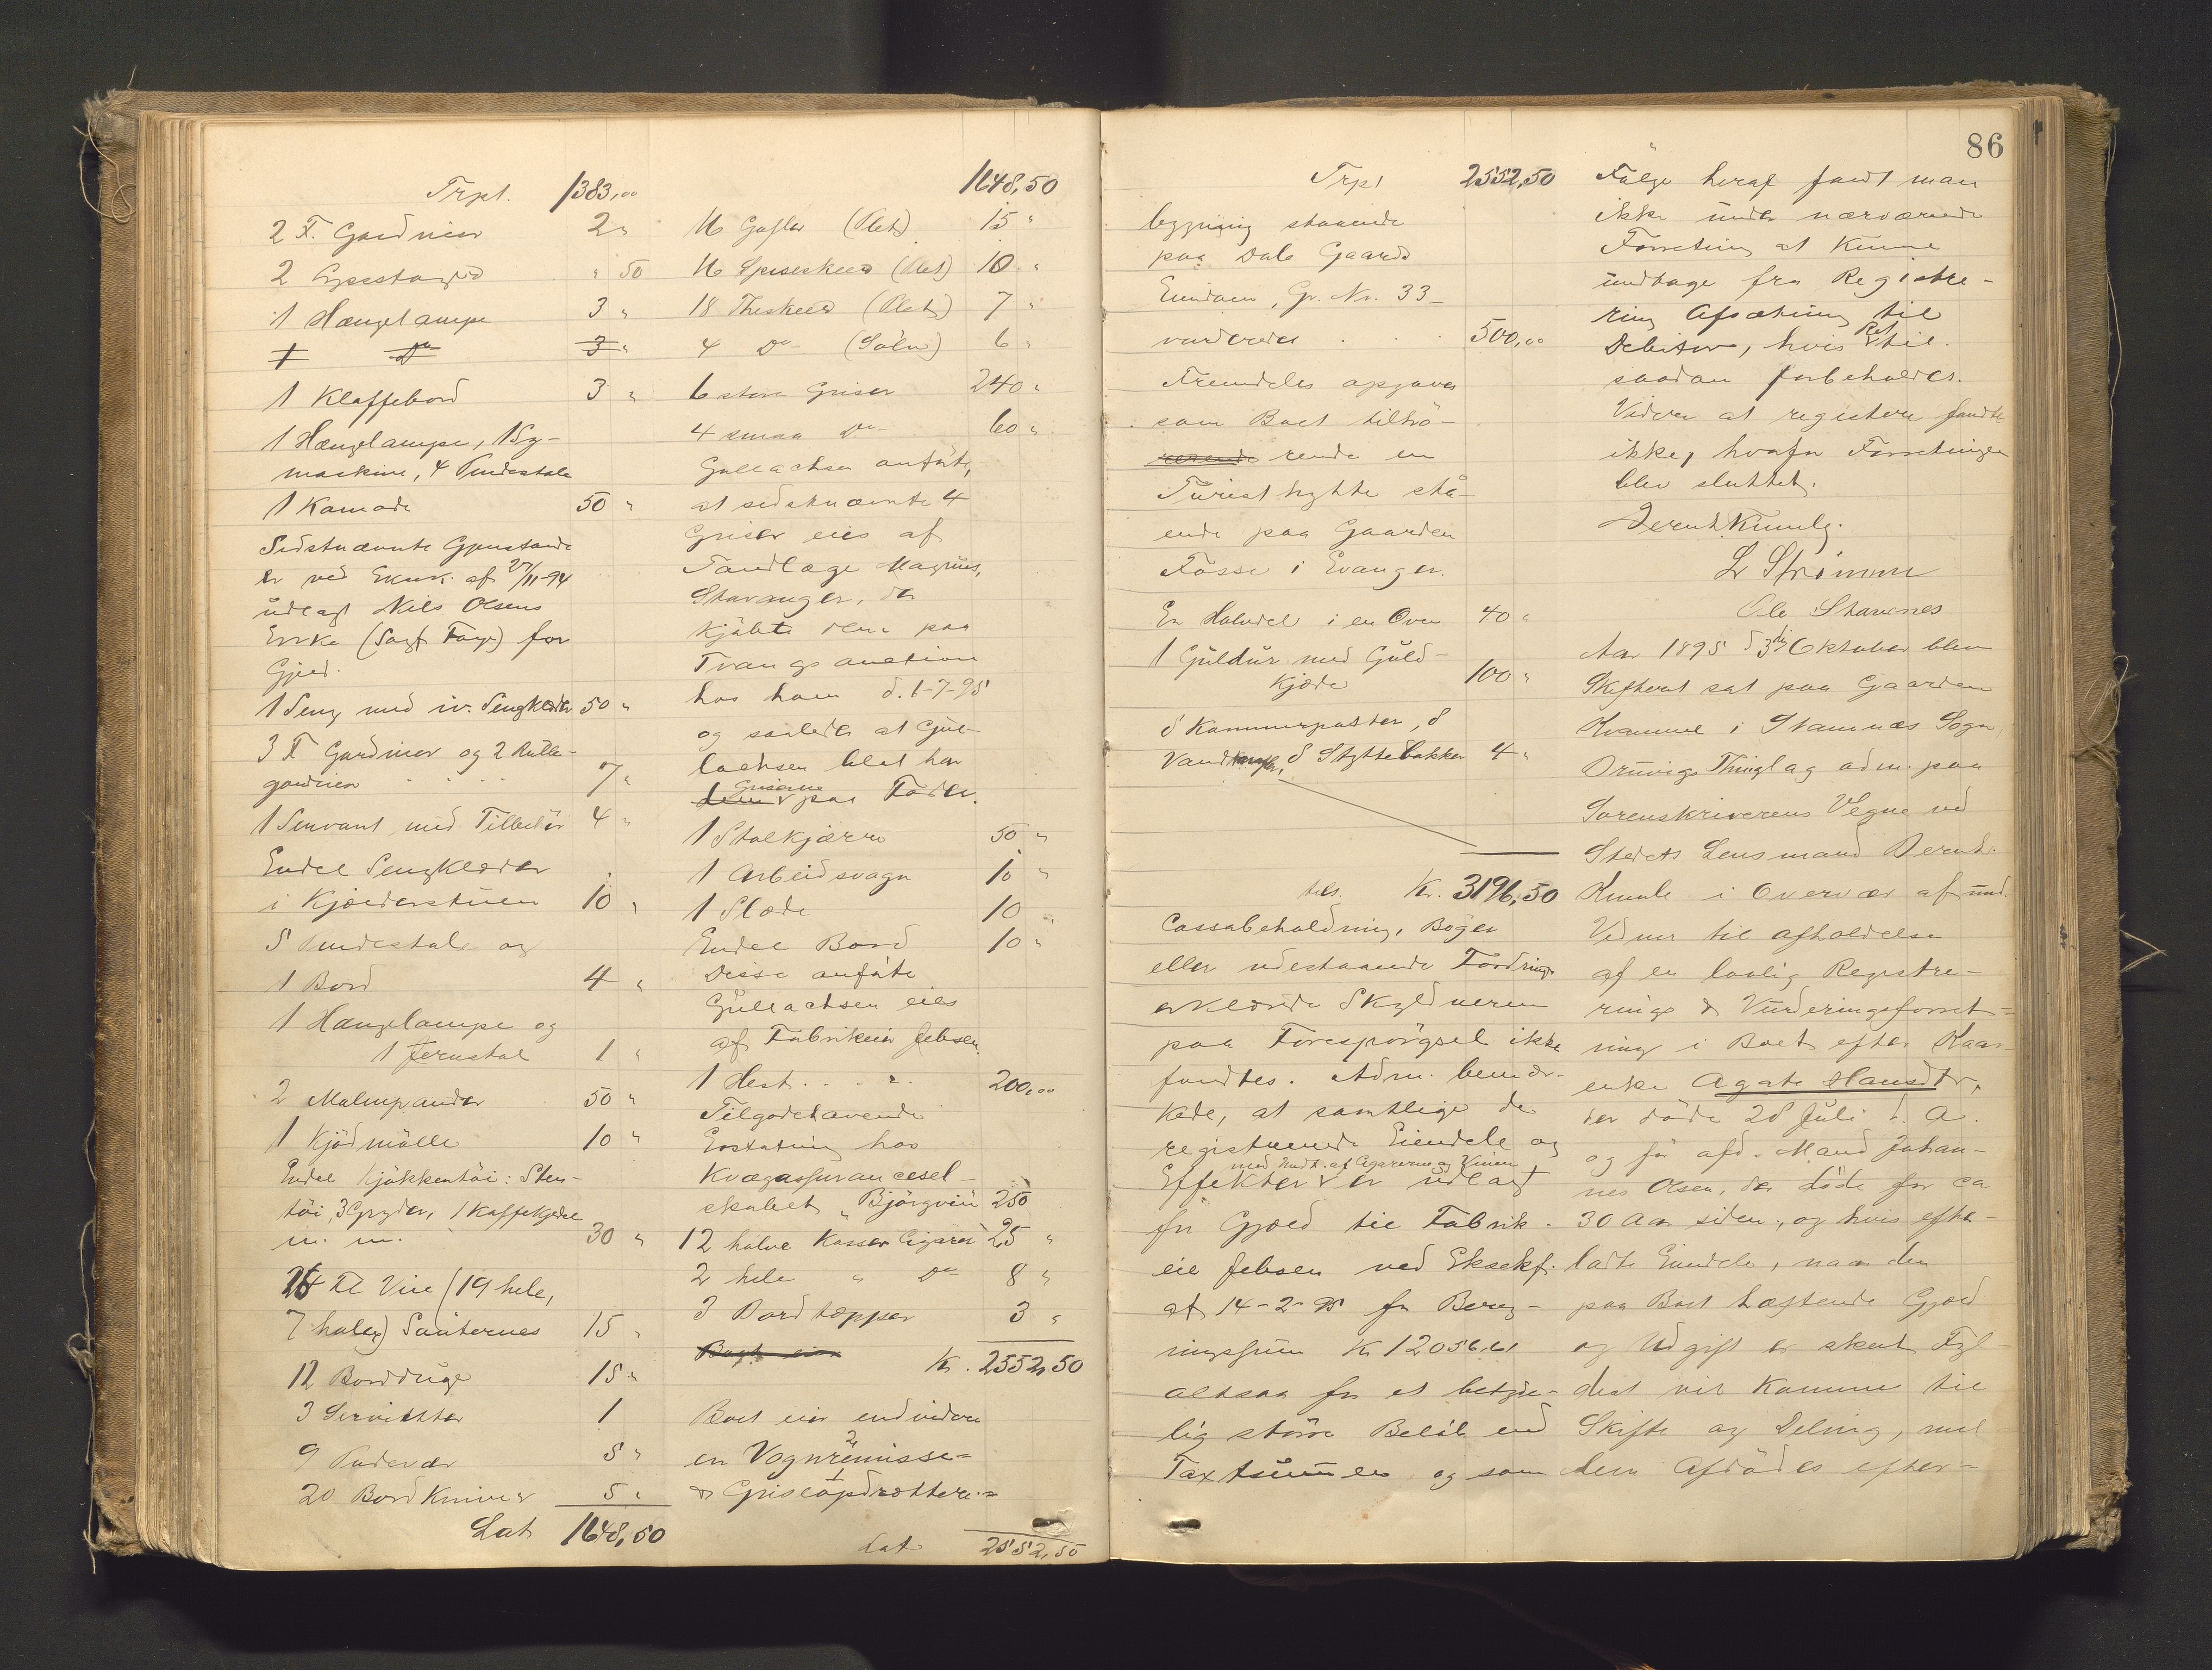 Trpt. 1383,00
2 F. Gardiner 2 "
2 " 50
1 Hængelampe 3 "
1 Do 3 "
1 Klaffebord 3 "
1 Hængelampe, 1 Sy-
maskine, 4 Pindestole
1 Komode 50 "
Sidstnævnte Gjenstande
er ved Eksek. af 27/11-94
udlagt Niels Olsens
Enke (Sagf. Fage) for
Gjæld.
1 Seng med iv. Sengklæder 50 "
3 F Gardiner og 2 Rulle-
gardiner 7 "
1 Servant med Tilbehör 4 "
Endel Sengklæder
i Kjælderstuen 10 "
5 Pindestole og
1 Bord 4 "
1 Hængelampe og
1 Jernstol 1 "
2 Malmpander 50 "
1 Kjödmölle 10 "
Endel Kjökkentöi: Sten-
töi, 3 Gryder, 1 Kaffekjedel
m. m. 30 "
Fl Vin (19 hele,
7 halve) Sauternes 15 "
12 Bordduge 15 "
3 Servietter 1
9 Pudevar 5 "
20 Bordkniver 5 "
Lat 1648,50
1648,50
16 Gafler (Plet) 15 "
16 Spiseskeer (Plet) 10 "
18 Theskeer (Plet) 7 "
4 Do (Sölv) 6 "
6 store Griser 240 "
4 smaa Do 60 "
Gullachsen anförte,
at sidstnævnte 4
Griser eies af
Tandlæge Magnus,
Stavanger, der
kjöbte dem paa
Tvangsauction
hos ham d. 1-7-95
og saaledes at Gul-
lachsen blot har
Griserne
dem paa Foder.
1 Stolkjærre 50 "
1 Arbeidsvogn 10 "
1 Slæde 10 "
Endel Bord 10 "
Disse anförte
Gullachsen eies
af Fabrikeier Jebsen.
1 Hest 200,00
Tilgodehavende
Erstatning hos
Kvægassurancesel-
skabet "Björgvin" 250
12 halve Kasser Cigarer 25 "
2 hele " Do 8 "
3 Bordtæpper 3 "
Kr. 2552,50
Boet eier endvidere
en Vognremisse-
& Griseopdrætteri-
Lat 2552,50
86
Trpt 2552,50
bygning staaende
paa Dale Gaards
Eiendom, Gr. Nr. 33
vurderedes 500,00
Fremdeles opgaves
som Boet tilhö-
rende en
Turisthytte stå-
ende paa Gaarden
Fosse i Evanger.
En Halvdel i en Ovn 40 "
1 Guldur med Guld-
kjæde 100 "
8 Kammerpotter, 8
Vand , 8 Støttebakker 4 "
tils. Kr. 3196,50
Cassabeholdning, Böger
eller udestaaende Fordringer
erklærede Skyldneren
paa Forespörgsel ikke
fandtes. Adm. bemær-
kede, at samtlige de
registrerede Eiendele og
med Undt. af Cigarerne og Vinen
Effekter er udlagt
for Gjæld til Fabrik-
eier Jebsen ved Eksekf.
af 14-2-95 for Bereg-
ningssum Kr 12056,61
altsaa for et betyde-
lig större Belöb end
Taxtsummen og som
Fölge heraf fandt man
ikke under nærværende
Forretning at kunne
undtage fra Registre-
ring Afsætning til
Debitor, hvis Ret til
saadan forbeholdes.
Videre at registrere fandtes
ikke, hvorfor Forretningen
blev sluttet.
Bernt Kvamle.
L Strömme
Ole Stavenes
Aar 1895 d 3die Oktober blev
Skifteret sat paa Gaarden
Kvamme i Stamnæs Sogn,
Bruvigs Thinglag adm. paa
Sorenskriverens Vegne ved
Stedets Lensmand Bernt
Kvamle i Overvær af und.
Vidner til afholdelse
af en lovlig Registre-
rings & Vurderingsforret-
ning i Boet efter Kaar-
enke Agate Hansdtr,
der döde 28 Juli d. A.
og før afd. Mand Johan-
nes Olsen, der döde for ca
30 Aar siden, og hvis efter-
ladte Eiendele, naar den
paa Boet hæftende Gjæld
og Udgift er skeet Fyl-
dest vil komme til
Skifte og Deling, mel-
lem Afdödes efter-